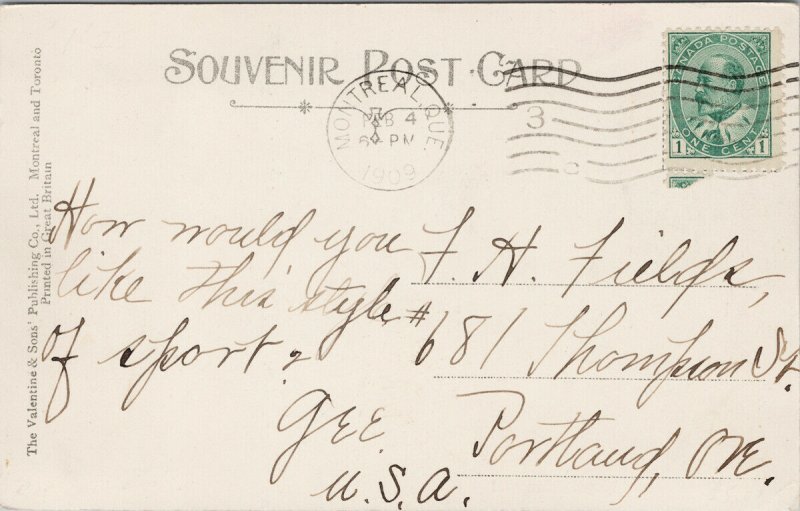 SOUVENIR POST CARD
MONTREAL, QUE
FEB 4
6 - PM
1909
3
CANADA POSTAGE
1 ONE CENT 1
The Valentine & Sons' Publishing Co., Ltd. Montreal and Toronto
Printed in Great Britain
How would you
like this style
of sport.
GEE.
F. H. Fields,
#681 Thompson St.
Portland, Ore.
U.S.A.